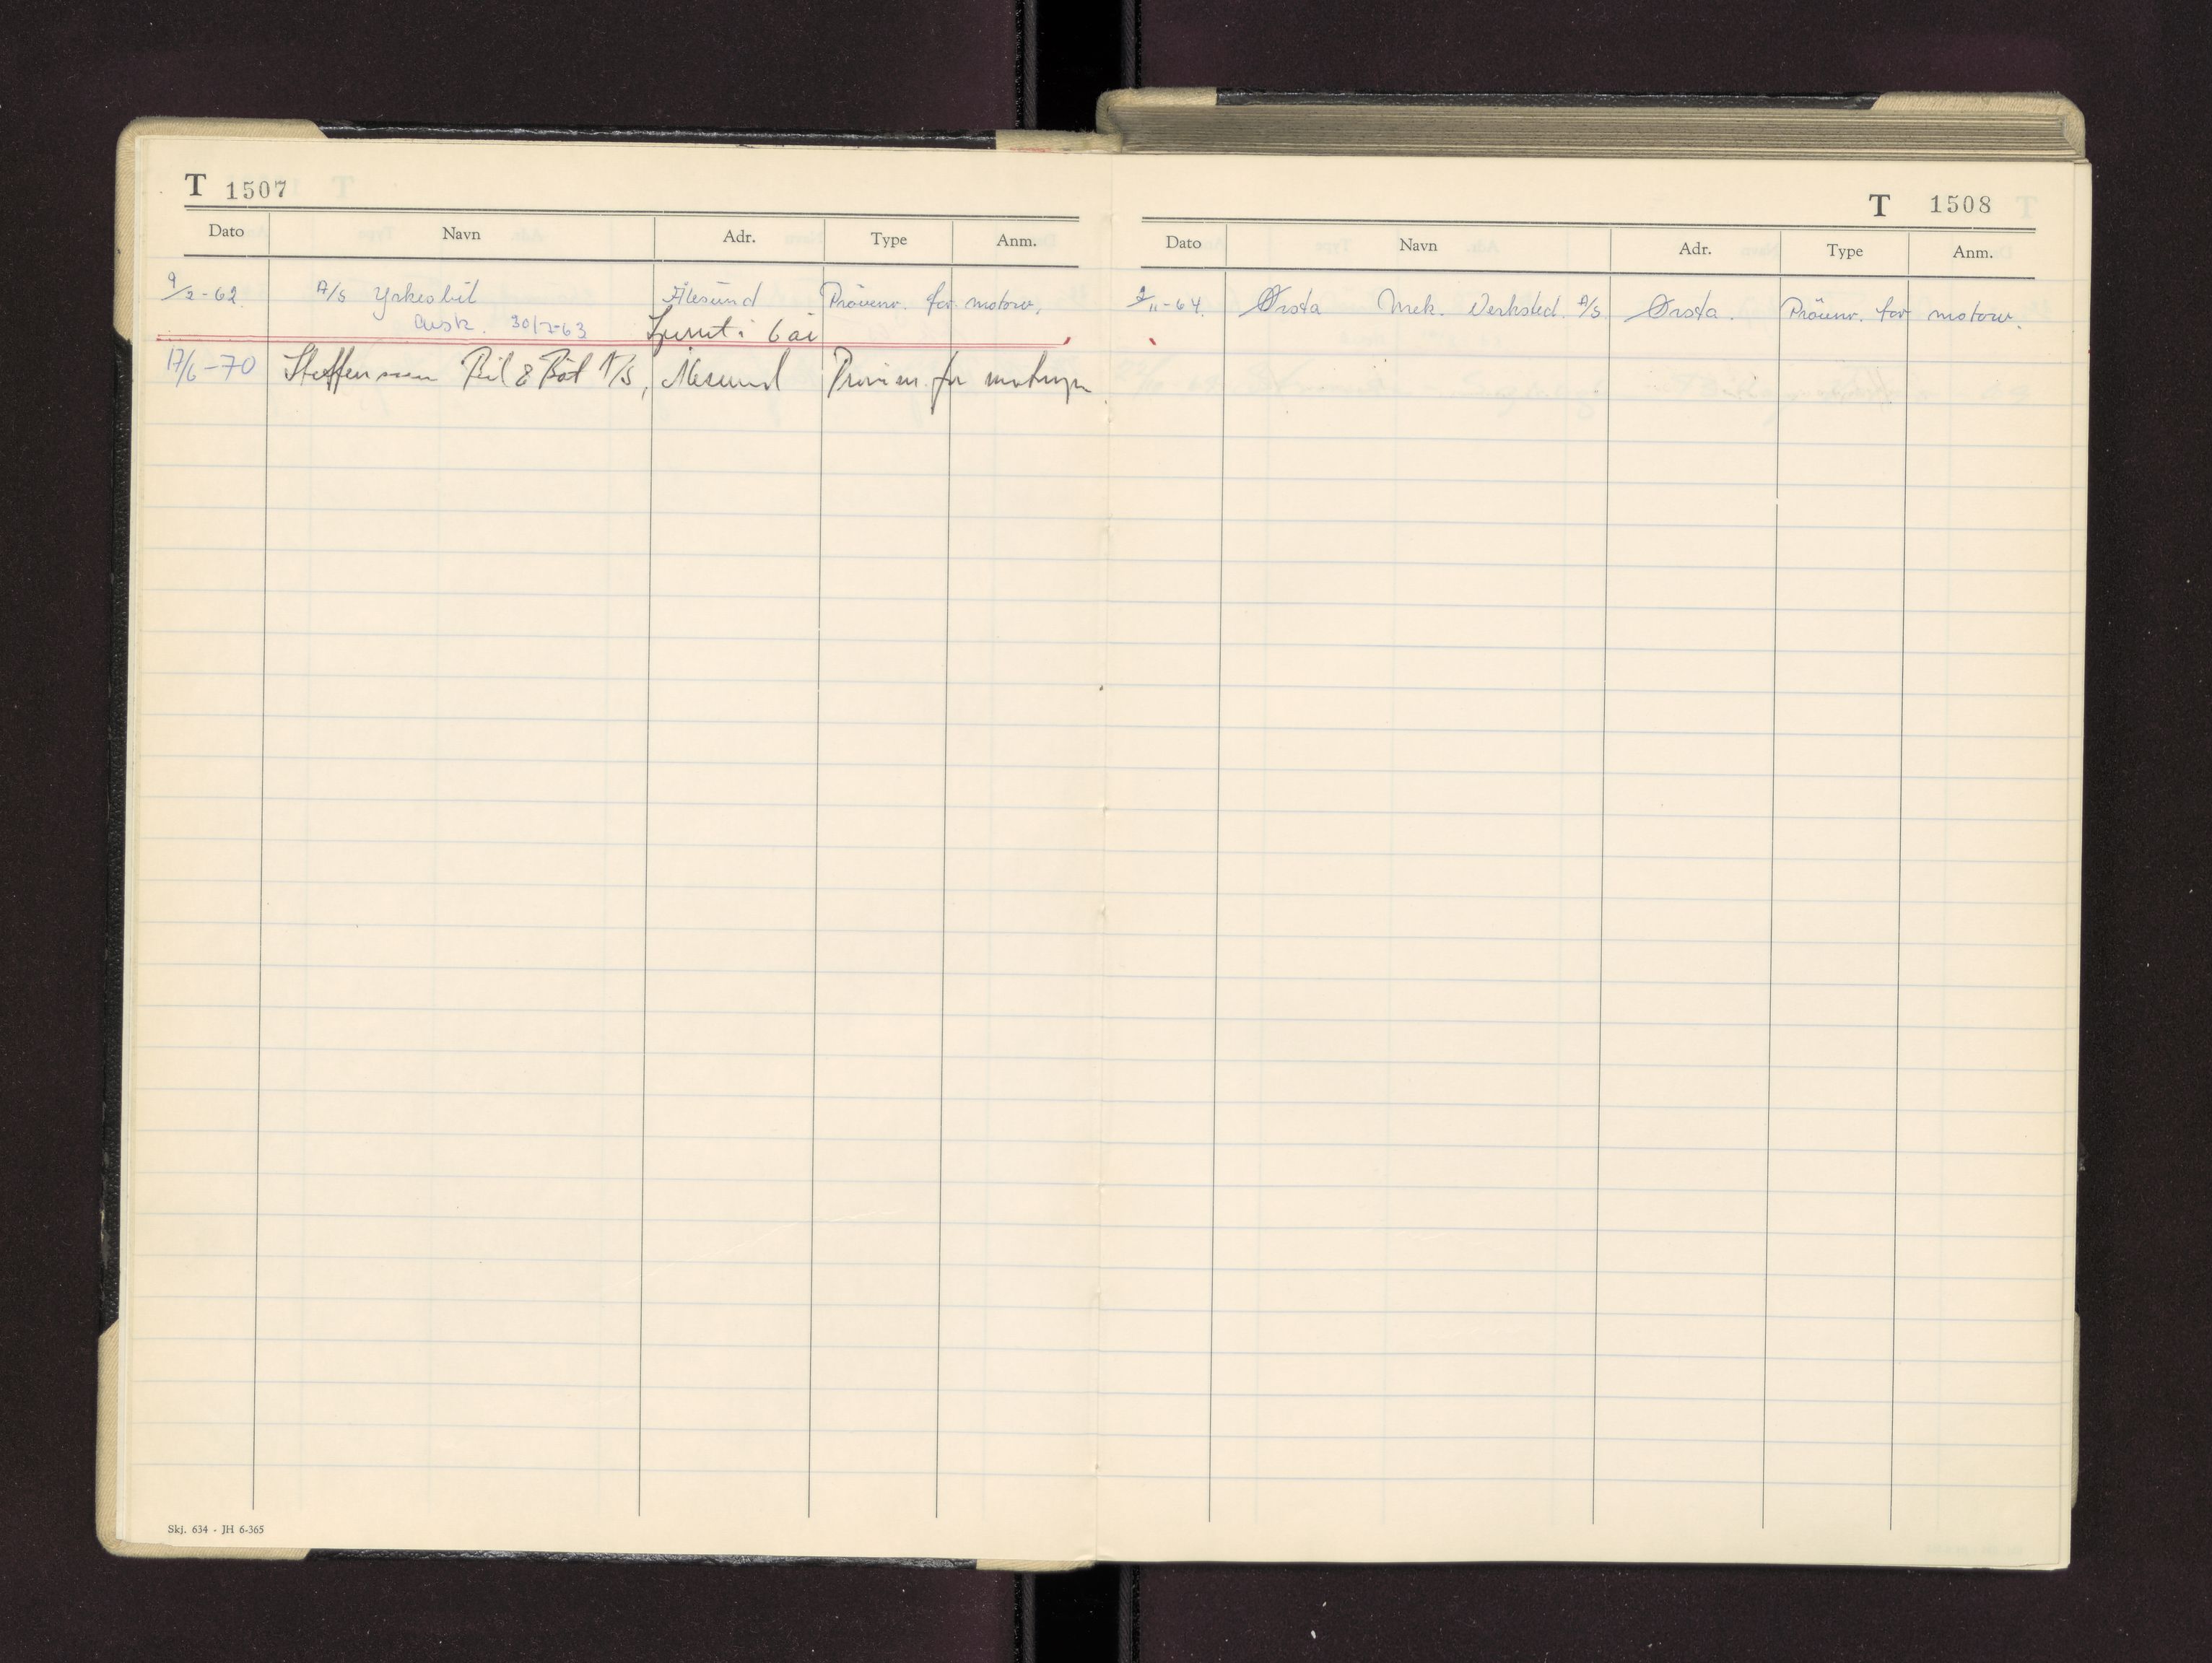 T 1507
Dato Navn Adr. Type Anm.
9/2-62. A/S Yrkesbil Ålesund Prövenr. for motorv.
avsk. 30/7-63 i 6 år
17/6-70 Steffensen Bil & Båt A/S, Ålesund for
Skj. 634 - JH 6-365
T 1508
Dato Navn Adr. Type Anm.
2/11-64. Ørsta Mek. Verksted. A/S Ørsta. Prövenr. for motorv.